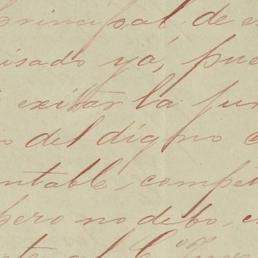 principal de e
isado yá, pue
exitar la fun
del digno c
ntable, compe
pero no debo, e